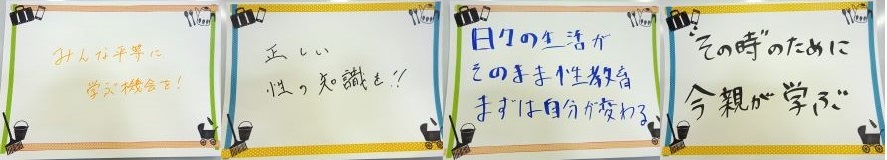 みんな平等に
学ぶ機会を!
正しい
性の知識を!!
日々の生活が
そのまま性教育
まずは自分が変わる
"その時"のために
今親が学ぶ